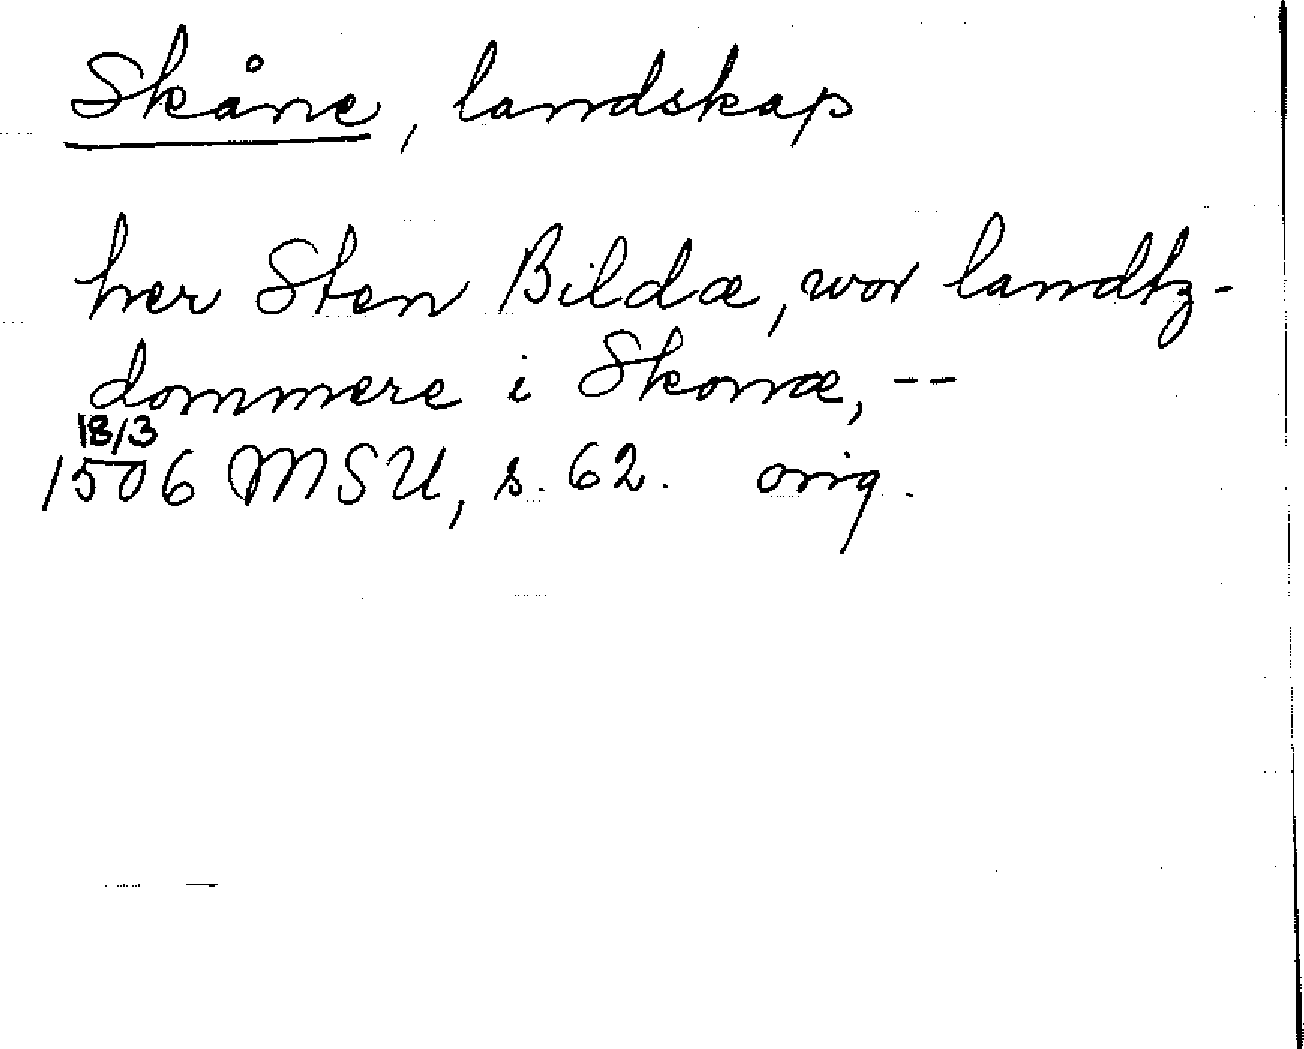 Skåne, landskap
her Sten Bildæ, wor landtz-
dommere i Skonæ, --
18/3
1506 MSU, s. 62. orig.